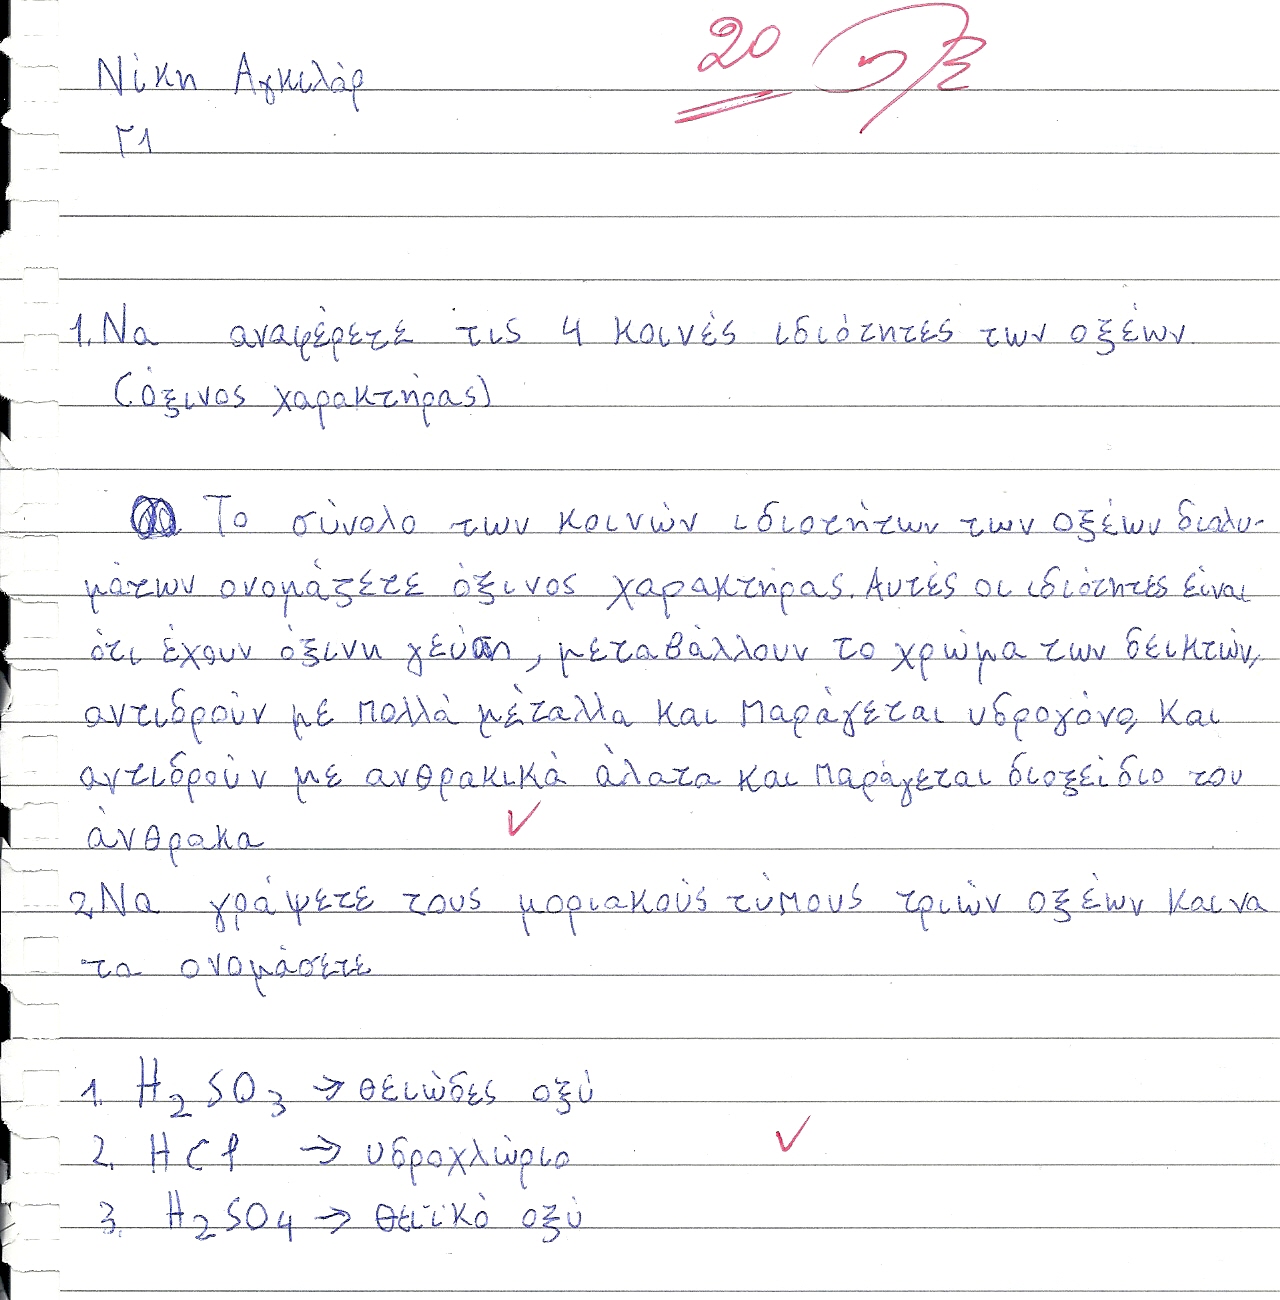 20
Νίκη Αγκιλάρ
Γ1
1. Να αναφέρετε τις 4 κοινές ιδιότητες των οξέων
(όξινος χαρακτήρας)
Το σύνολο των κοινών ιδιοτήτων των οξέων διαλυ-
μάτων ονομάζετε όξινος χαρακτήρας. Αυτές οι ιδιότητες είναι
ότι έχουν όξινη γεύση, μεταβάλλουν το χρώμα των δεικτών,
αντιδρούν με πολλά μέταλλα και παράγεται υδρογόνο, και
αντιδρούν με ανθρακικά άλατα και παράγεται διοξείδιο του
άνθρακα
2. Να γράψετε τους μοριακούς τύπους τριών οξέων και να
τα ονομάσετε
1. H₂SO₃ → θειώδες οξύ
2. HCl → υδροχλώριο
3. H₂SO₄ → θειϊκό οξύ